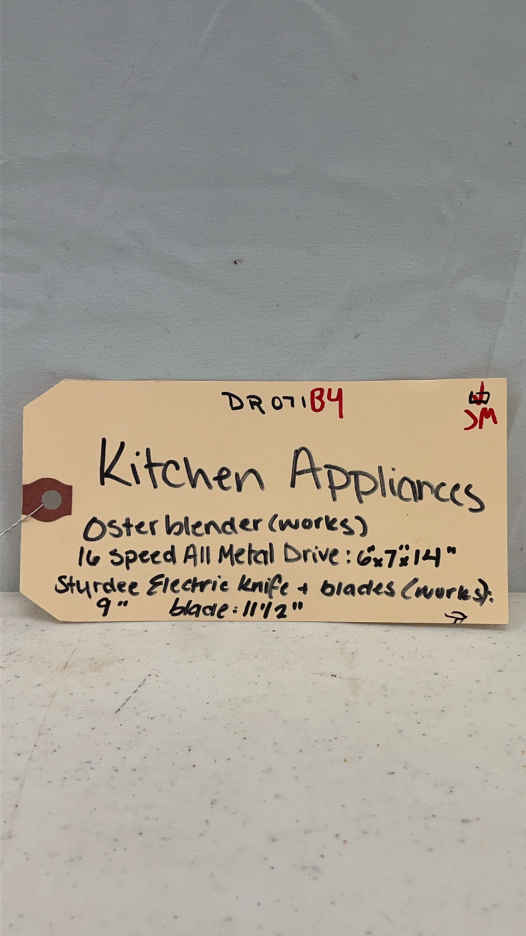 DR071B4
JM
Kitchen Appliances
Oster blender (works)
16 Speed All Metal Drive: 6"x7"x14"
Sturdee Electric knife + blades (works):
9" blade: 11 1/2"